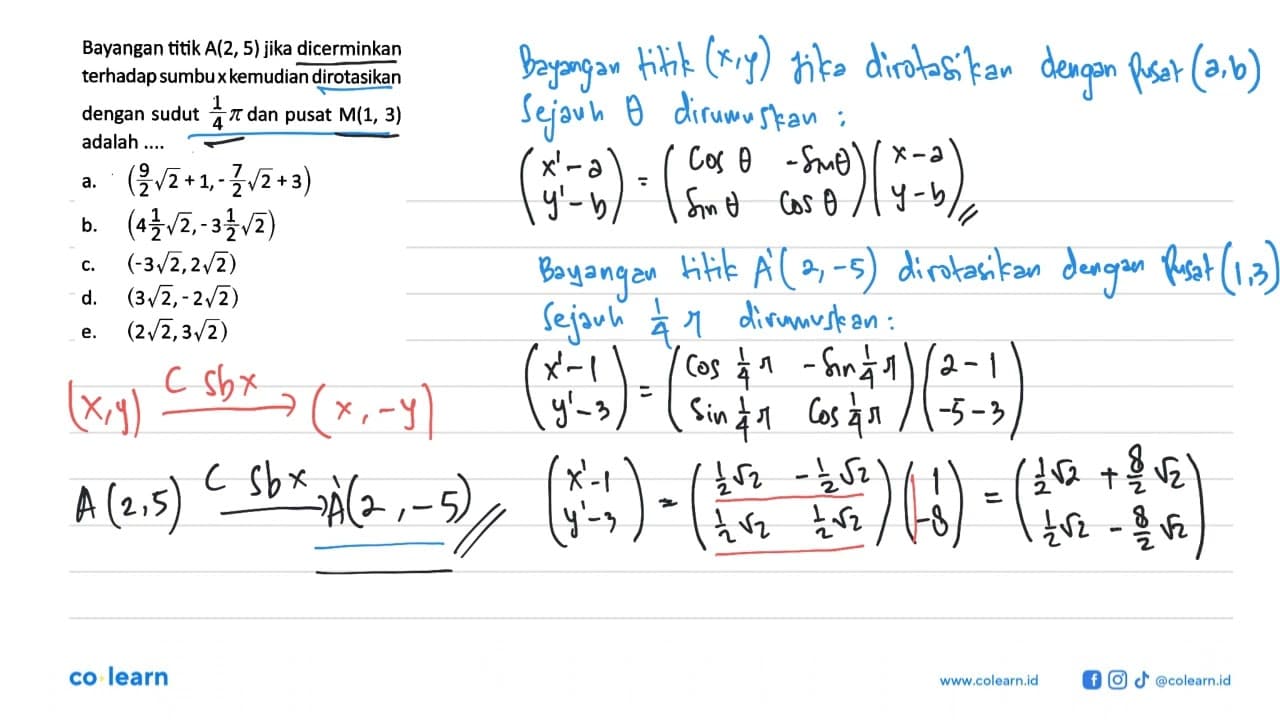 Bayangan titik A(2, 5) jika dicerminkan
terhadap sumbu x kemudian dirotasikan
dengan sudut 1/4 π dan pusat M(1, 3)
adalah ....
a. (9/2 √2 + 1, - 7/2 √2 + 3)
b. (4 1/2 √2, -3 1/2 √2)
c. (-3√2, 2√2)
d. (3√2, -2√2)
e. (2√2, 3√2)
(x,y) C sbx → (x, -y)
A(2,5) C sbx → A'(2, -5)
Bayangan titik (x,y) jika dirotasikan dengan pusat (a,b)
sejauh θ dirumuskan :
(x'-a / y'-b) = (cos θ -sin θ / sin θ cos θ) (x-a / y-b)
Bayangan titik A'(2, -5) dirotasikan dengan pusat (1,3)
sejauh 1/4 π dirumuskan :
(x'-1 / y'-3) = (cos 1/4 π -sin 1/4 π / sin 1/4 π cos 1/4 π) (2-1 / -5-3)
(x'-1 / y'-3) = (1/2 √2 -1/2 √2 / 1/2 √2 1/2 √2) (1 / -8) = (1/2 √2 + 8/2 √2 / 1/2 √2 - 8/2 √2)
co learn
www.colearn.id
@colearn.id